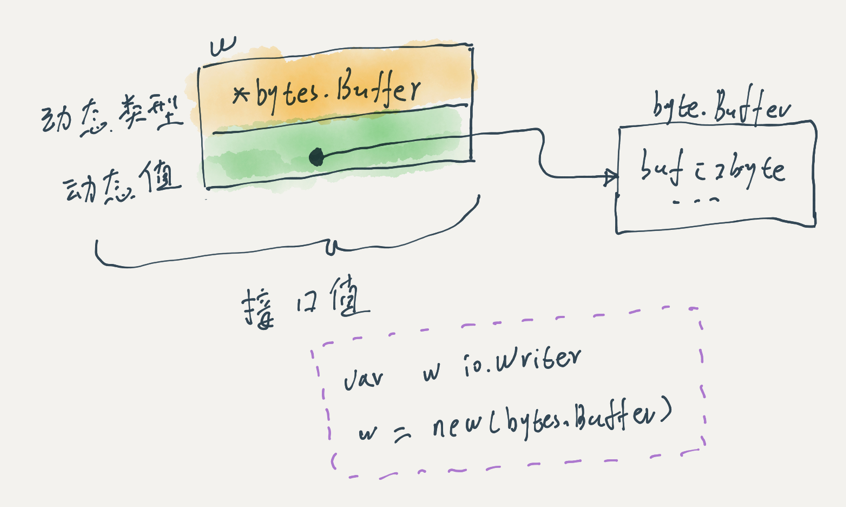 w
动态类型
*bytes.Buffer
动态值
byte.Buffer
buf []byte
...
接口值
var w io.Writer
w = new(bytes.Buffer)